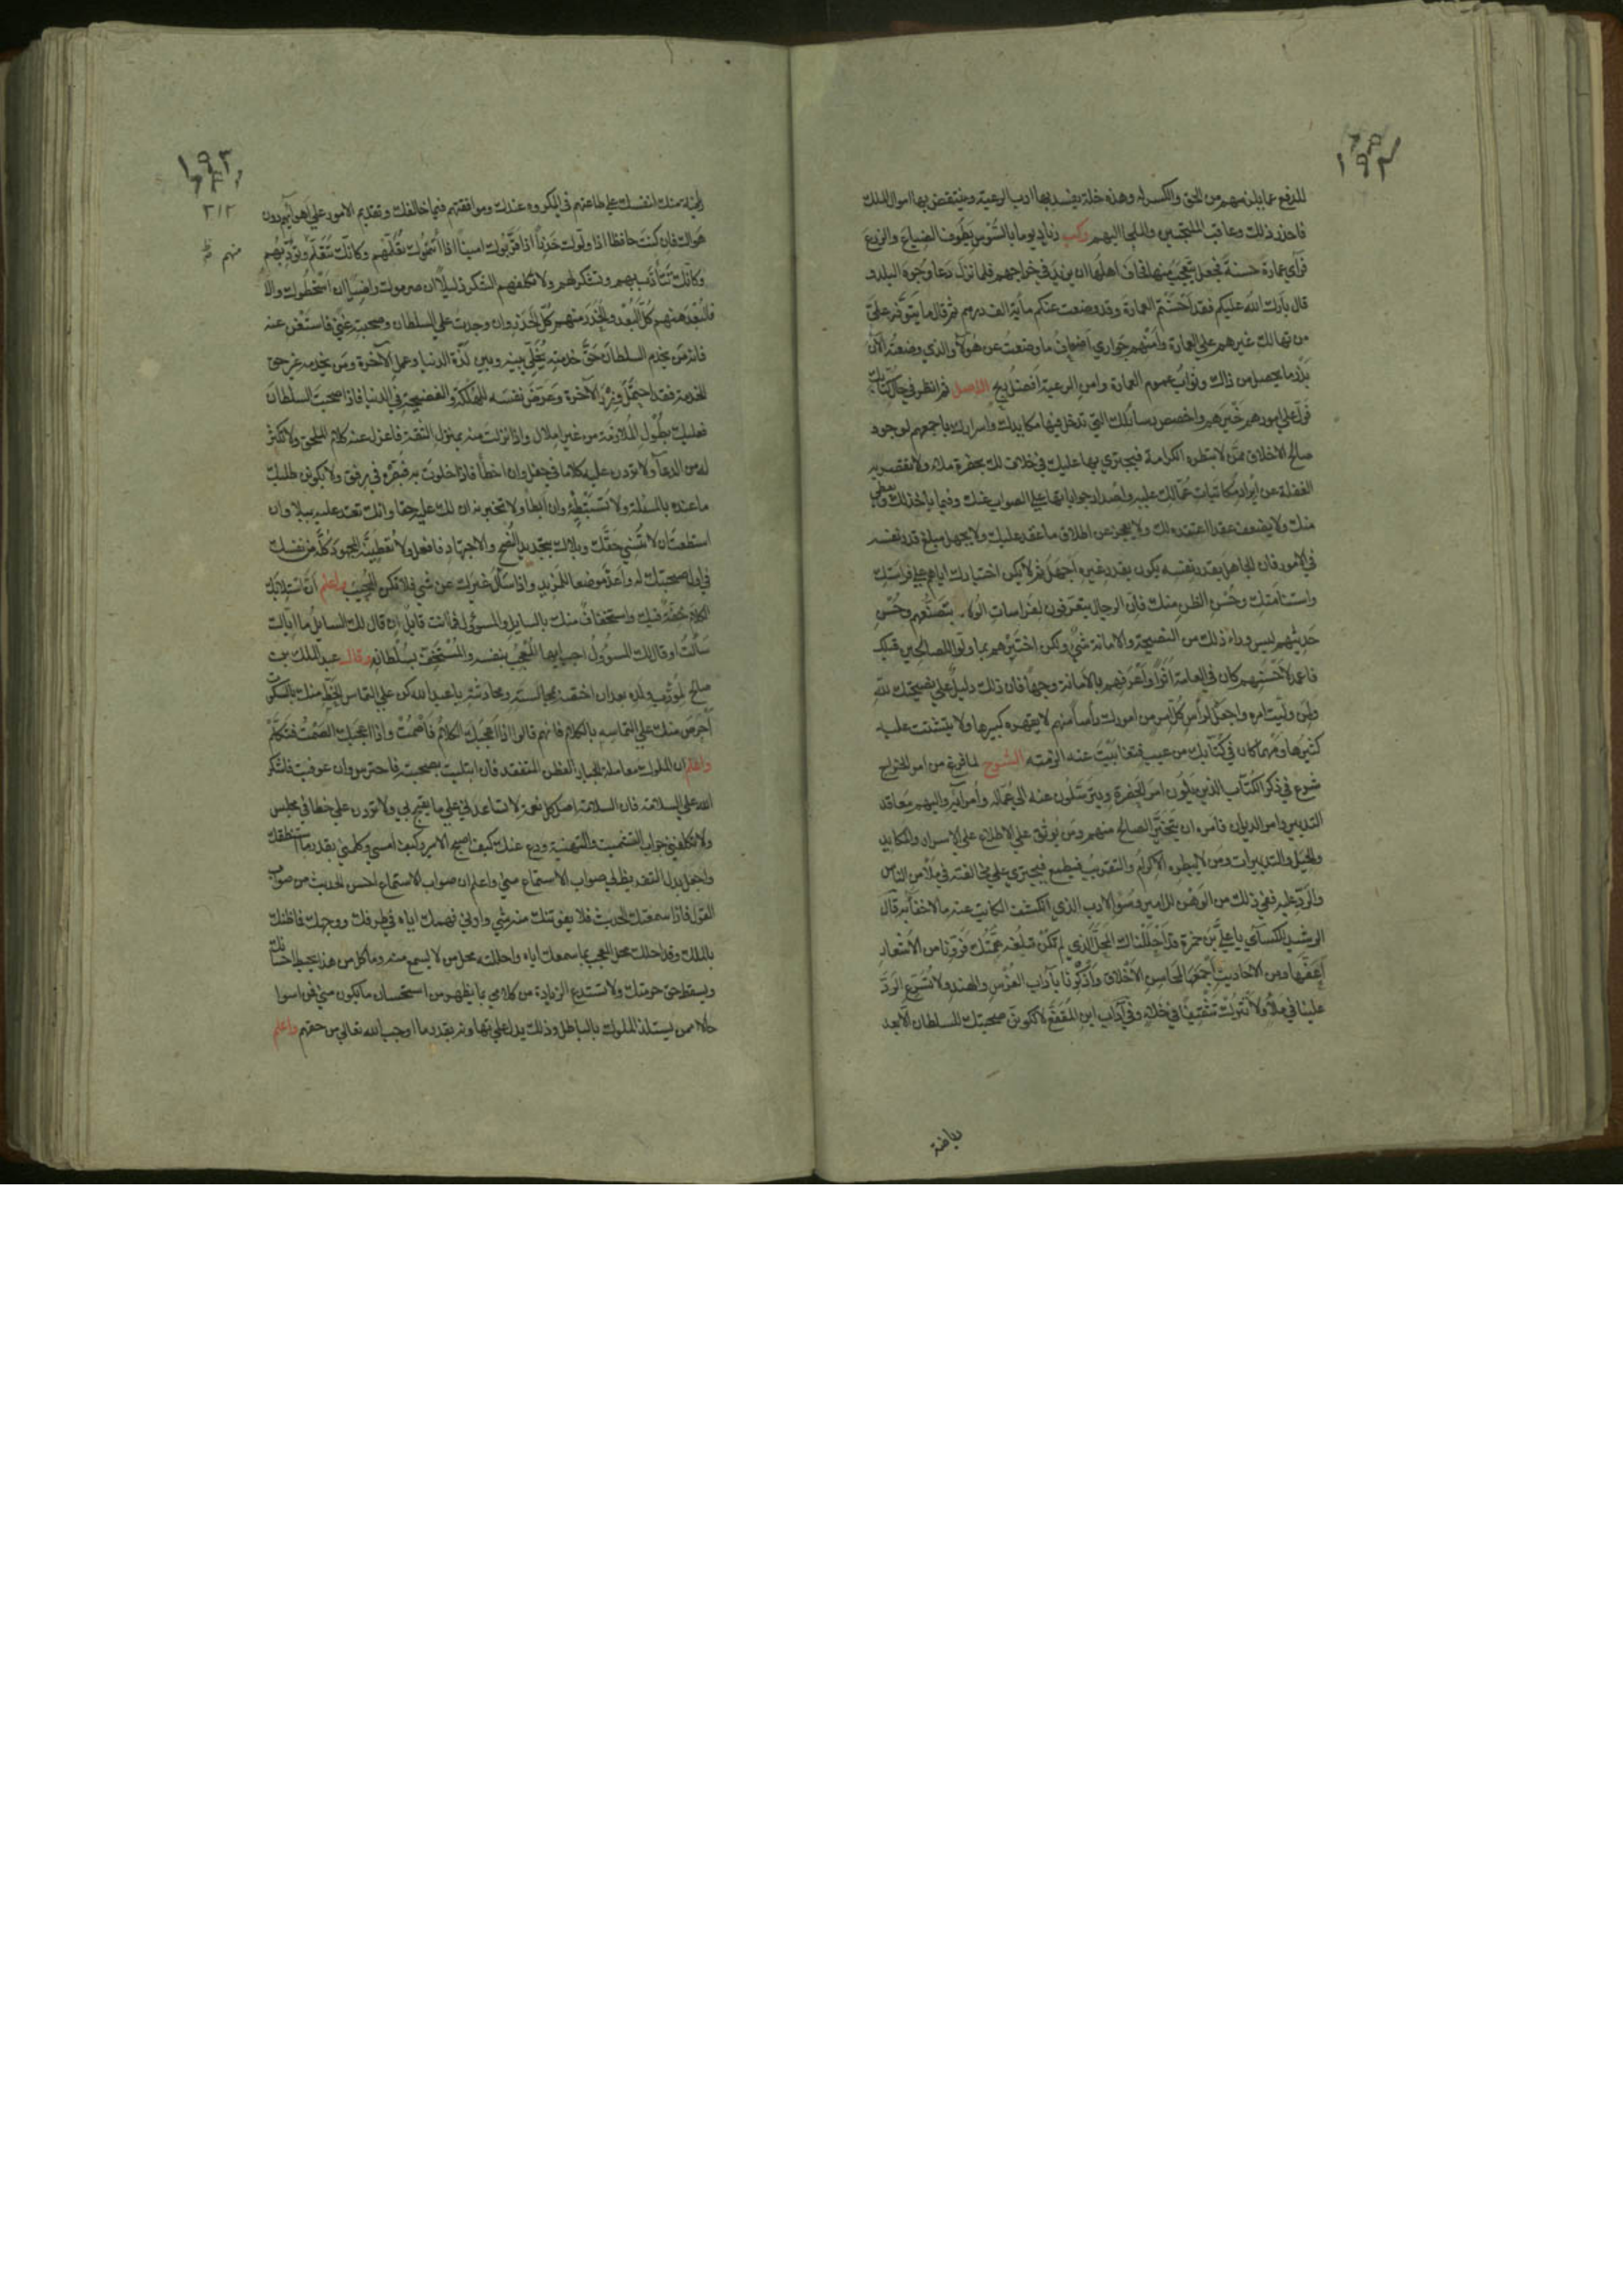 ١٩٢
للدفع عما يلزمهم من الحق والكسر له وهذه خلة يفسد بها ادب الرعية وينتقض بها اموال الملك
فاحذر ذلك وعاقب الملتجئين والملجأ اليهم وركب زياد يوما بالسوس يطوف الضياع والزرع
فرآى عمارة حسنة فجعل يتعجب منها فخاف اهلها ان يزيد في خراجهم فلما نزل دعا وجوه البلد و
قال بارك الله عليكم فقد احسنتم العمارة وقد وضعت عنكم مأية الف درهم ثم قال ما يتوفر على
من تهالك غيرهم على العمارة وأمنهم جواري اضعاف ما وضعت عن هولآء والذي وضعته الآن
بازر ما يحصل من ذاك وثواب عموم العمارة وامن الرعية افضل ربح الاصل ثم انظر في حال كتابك
فول على امورهم خيرهم واخصص رسائلك التي تدخل فيها مكايدك واسرارك باجمعهم لوجود
صالح الاخلاق ممن لا تبطره الكرامة فيجتري بها عليك في خلاف لك بحضرة ملاء ولا تقصر به
الغفلة عن ايراد مكاتبات عمالك عليه واصدار جواباتها على الصواب عنك وفيما يأخذ لك ويعطي
منك ولا يضعف عقدا اعتقده لك ولا يعجز عن اطلاق ما عقد عليك ولا يجهل مبلغ قدر نفسه
في الامور فان الجاهل بقدر نفسه يكون بقدر غيره اجهل ثم لا يكن اختيارك اياهم على فراستك
واستنامتك وحسن الظن منك فان الرجال يتعرفون لفراسات الولاء بتصنعهم وحسن
حديثهم ليس وراء ذلك من النصيحة والامانة شئ ولكن اختبرهم بما ولوا للصالحين قبلك
فاعمد لاحسنهم كان في العامة اثرا واعرفهم بالامانة وجها فان ذلك دليل على نصيحتك لله
ولمن وليت امره واجعل لرأس كل امر من امورك رأسا منهم لا يقهره كبيرها ولا يتشتت عليه
كثيرها ومهما كان في كتابك من عيب فتغابيت عنه الزمته الشرح لما فرغ من امر الخراج
شرع في ذكر الكتاب الذين يلون امر الحضرة ويترسلون عنه الى عماله وأمرآئه واليهم معاقد
التدبير وامر الديوان فامره ان يتخير الصالح منهم ومن يوثق على الاطلاع على الاسرار والمكايد
والحيل والتدبيرات ومن لا يبطره الاكرام والتقريب فيطمع فيجتري على مخالفته في ملأ من الناس
والرد عليه ففي ذلك من الوهن للامير وسوء الادب الذي انكشف الكاتب عنه ما لا خفآء به قال
الرشيد للكسآئي يا علي بن حمزة قد احللناك المحل الذي لم تكن تبلغه همتك فروّنا من الاشعار
أعفها ومن الاحاديث أجمعها لمحاسن الاخلاق وذاكرنا بآداب الفرس والهند ولا تسرع الرد
علينا في ملأ ولا تترك تثقيفنا في خلاء وفي آداب ابن المقفع لا تكونن صحبتك للسلطان الا بعد
رياضة
١٩٣
٣١٢
رياضة منك لنفسك على طاعتهم في المكروه عندك وموافقتهم فيما خالفك وتقدير الامور على اهوآئهم دون
هواك فان كنت حافظا اذا ولوك حذرا اذا قربوك امينا اذا ائتمنوك تعلمهم وكانك تتعلم وتؤدبهم
منهم ظ
وكانك تتأدب بهم وتشكر لهم ولا تكلفهم الشكر ذليلا ان صرموك راضيا ان اسخطوك والا
فالبعد منهم كل البعد والحذر منهم كل الحذر وان وجدت على السلطان وصحبته غنى فاستغن عنه
فانه من يخدم السلطان حق خدمته يخلى بينه وبين لذة الدنيا وعمل الآخرة ومن يخدمه غير حق
الخدمة فقد احتمل وزر الآخرة وعرض نفسه للهلكة والفضيحة في الدنيا فاذا صحبت السلطان
فعليك بطول الملازمة من غير املال واذا نزلت منه بمنزل الثقة فاعزل عنه كلام الملق ولا تكثر
له من الدعآء ولا تردن عليه كلاما في حفل وان اخطأ فاذا خلوت به فبصره في رفق ولا يكونن طلبك
ما عنده بالمسئلة ولا تستبطئه وان ابطأ ولا تخبرنه ان لك عليه حقا وانك تعتد عليه ببلاء وان
استطعت ان لا تنسي حقك وبلاك بتجديد النصح والاجتهاد فافعل ولا تعطينه المجهود كله من نفسك
في اول صحبتك له واعد موضعا للمزيد واذا سأل غيرك عن شئ فلا تكن المجيب واعلم ان استلابك
الكلام خفة فيك واستخفاف منك بالسايل والمسؤل فما انت قايل ان قال لك السايل ما اياك
سألت او قال لك المسؤول اجب ايها المعجب بنفسه والمستخف بسلطانه وقال عبد الملك بن
صالح لمؤدب ولده بعد ان اختصه بمجالسته ومحادثته يا عبد الله كن على التماس الحظ منك بالسكوت
احرص منك على التماسه بالكلام فانهم قالوا اذا اعجبك الكلام فاصمت واذا اعجبك الصمت فتكلم
واعلم ان الملوك معاملة الجبار الفطن المتفقد فان ابتليت بصحبته فاحترس وان عوفيت فاشكر
الله على السلامة فان السلامة اصل كل نعمة لا تساعدني على ما يقبح بي ولا تردن علي خطأ في مجلس
ولا تكلفني جواب التشميت والتهنية ودع عنك كيف اصبح الامير وكيف امسى وكلمني بقدر ما استنطقك
واجعل بدل التقريظ لي صواب الاستماع مني واعلم ان صواب الاستماع احسن الحديث من صواب
القول فاذا سمعتك الحديث فلا يفوتنك منه شئ وارني فهمك اياه في طرفك ووجهك فما ظنك
بالملك وقد احلك محل المعجب بما سمعك اياه واحللته محل من لا يسمع منه وما كل من هذا يحيط احسانك
ويسقط حق حرمتك ولا تستدع الزيادة من كلامي بما يظهر من استحسان ما يكون مني فمن اسوأ
حالا ممن يستلذ الملوك بالباطل وذلك يدل على تهاونه بقدر ما اوجب الله تعالى من حقهم واعلم